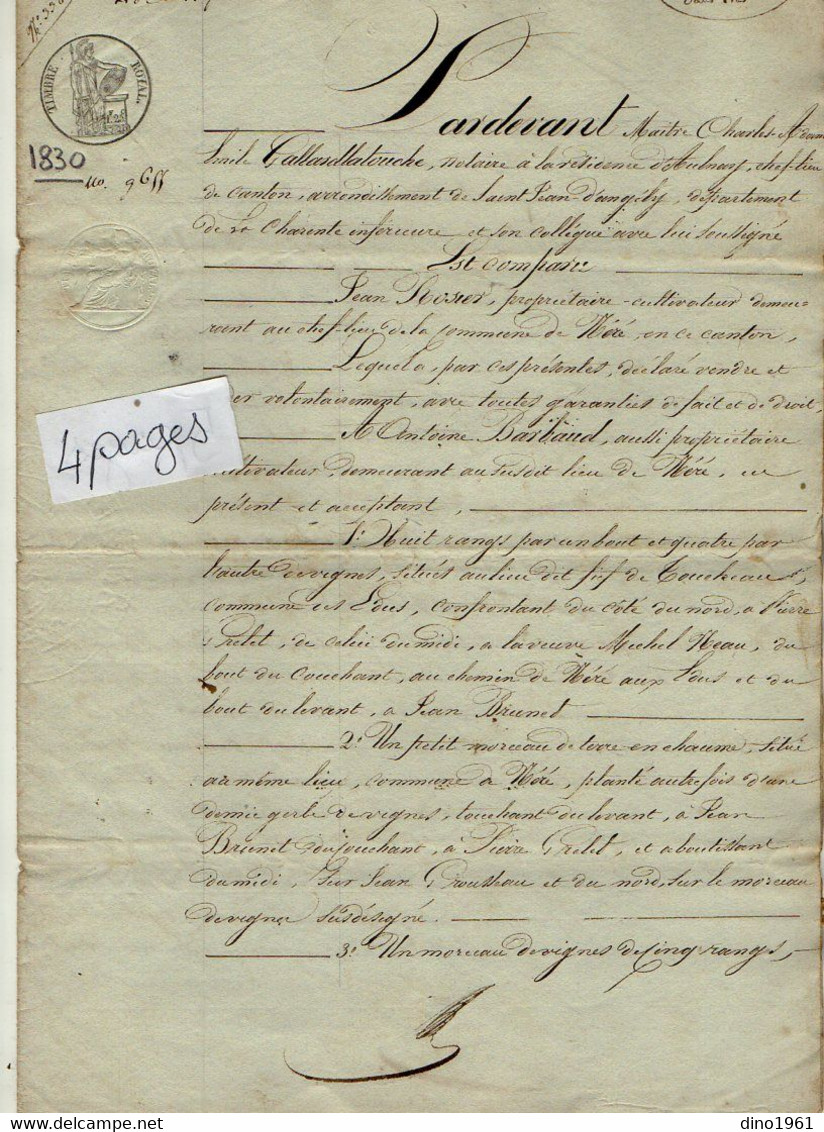 TIMBRE ROYAL
1830
4 pages
Pardevant Maitre Charles Adam
Emile Tallandlatouche, notaire à la résidence d'Aulnay, chef-lieu
de canton, arrondissement de Saint Jean d'angély, département
de la Charente inférieure et son collègue avec lui soussigné
Est comparu
Jean Rosier, propriétaire-cultivateur demeu=
rant au chef-lieu de la commune de Néré, en ce canton,
Lequel a, par ces présentes, déclaré vendre et
volontairement, avec toutes garanties de fait et de droit,
A Antoine Barbaud, aussi propriétaire
cultivateur, demeurant au susdit lieu de Néré, ce
présent et acceptant,
1º Huit rangs par un bout et quatre par
l'autre de vignes, situés au lieu dit fief de
commune des Edus, confrontant du côté du nord, à Pierre
Prelet, de celui du midi, à la veuve Michel Neau, du
bout du couchant, au chemin de Néré aux Edus et du
bout du levant, à Jean Brunet
2º Un petit morceau de terre en chaume, situé
au même lieu, commune de Néré, planté autrefois d'une
demie gerbe de vignes, touchant du levant, à Jean
Brunet du couchant, à Pierre Prelet, et aboutissant
du midi, sur Jean Grousseau et du nord, sur le morceau
de vigne susdésigné.
3º Un morceau de vignes de cinq rangs,
dino1961